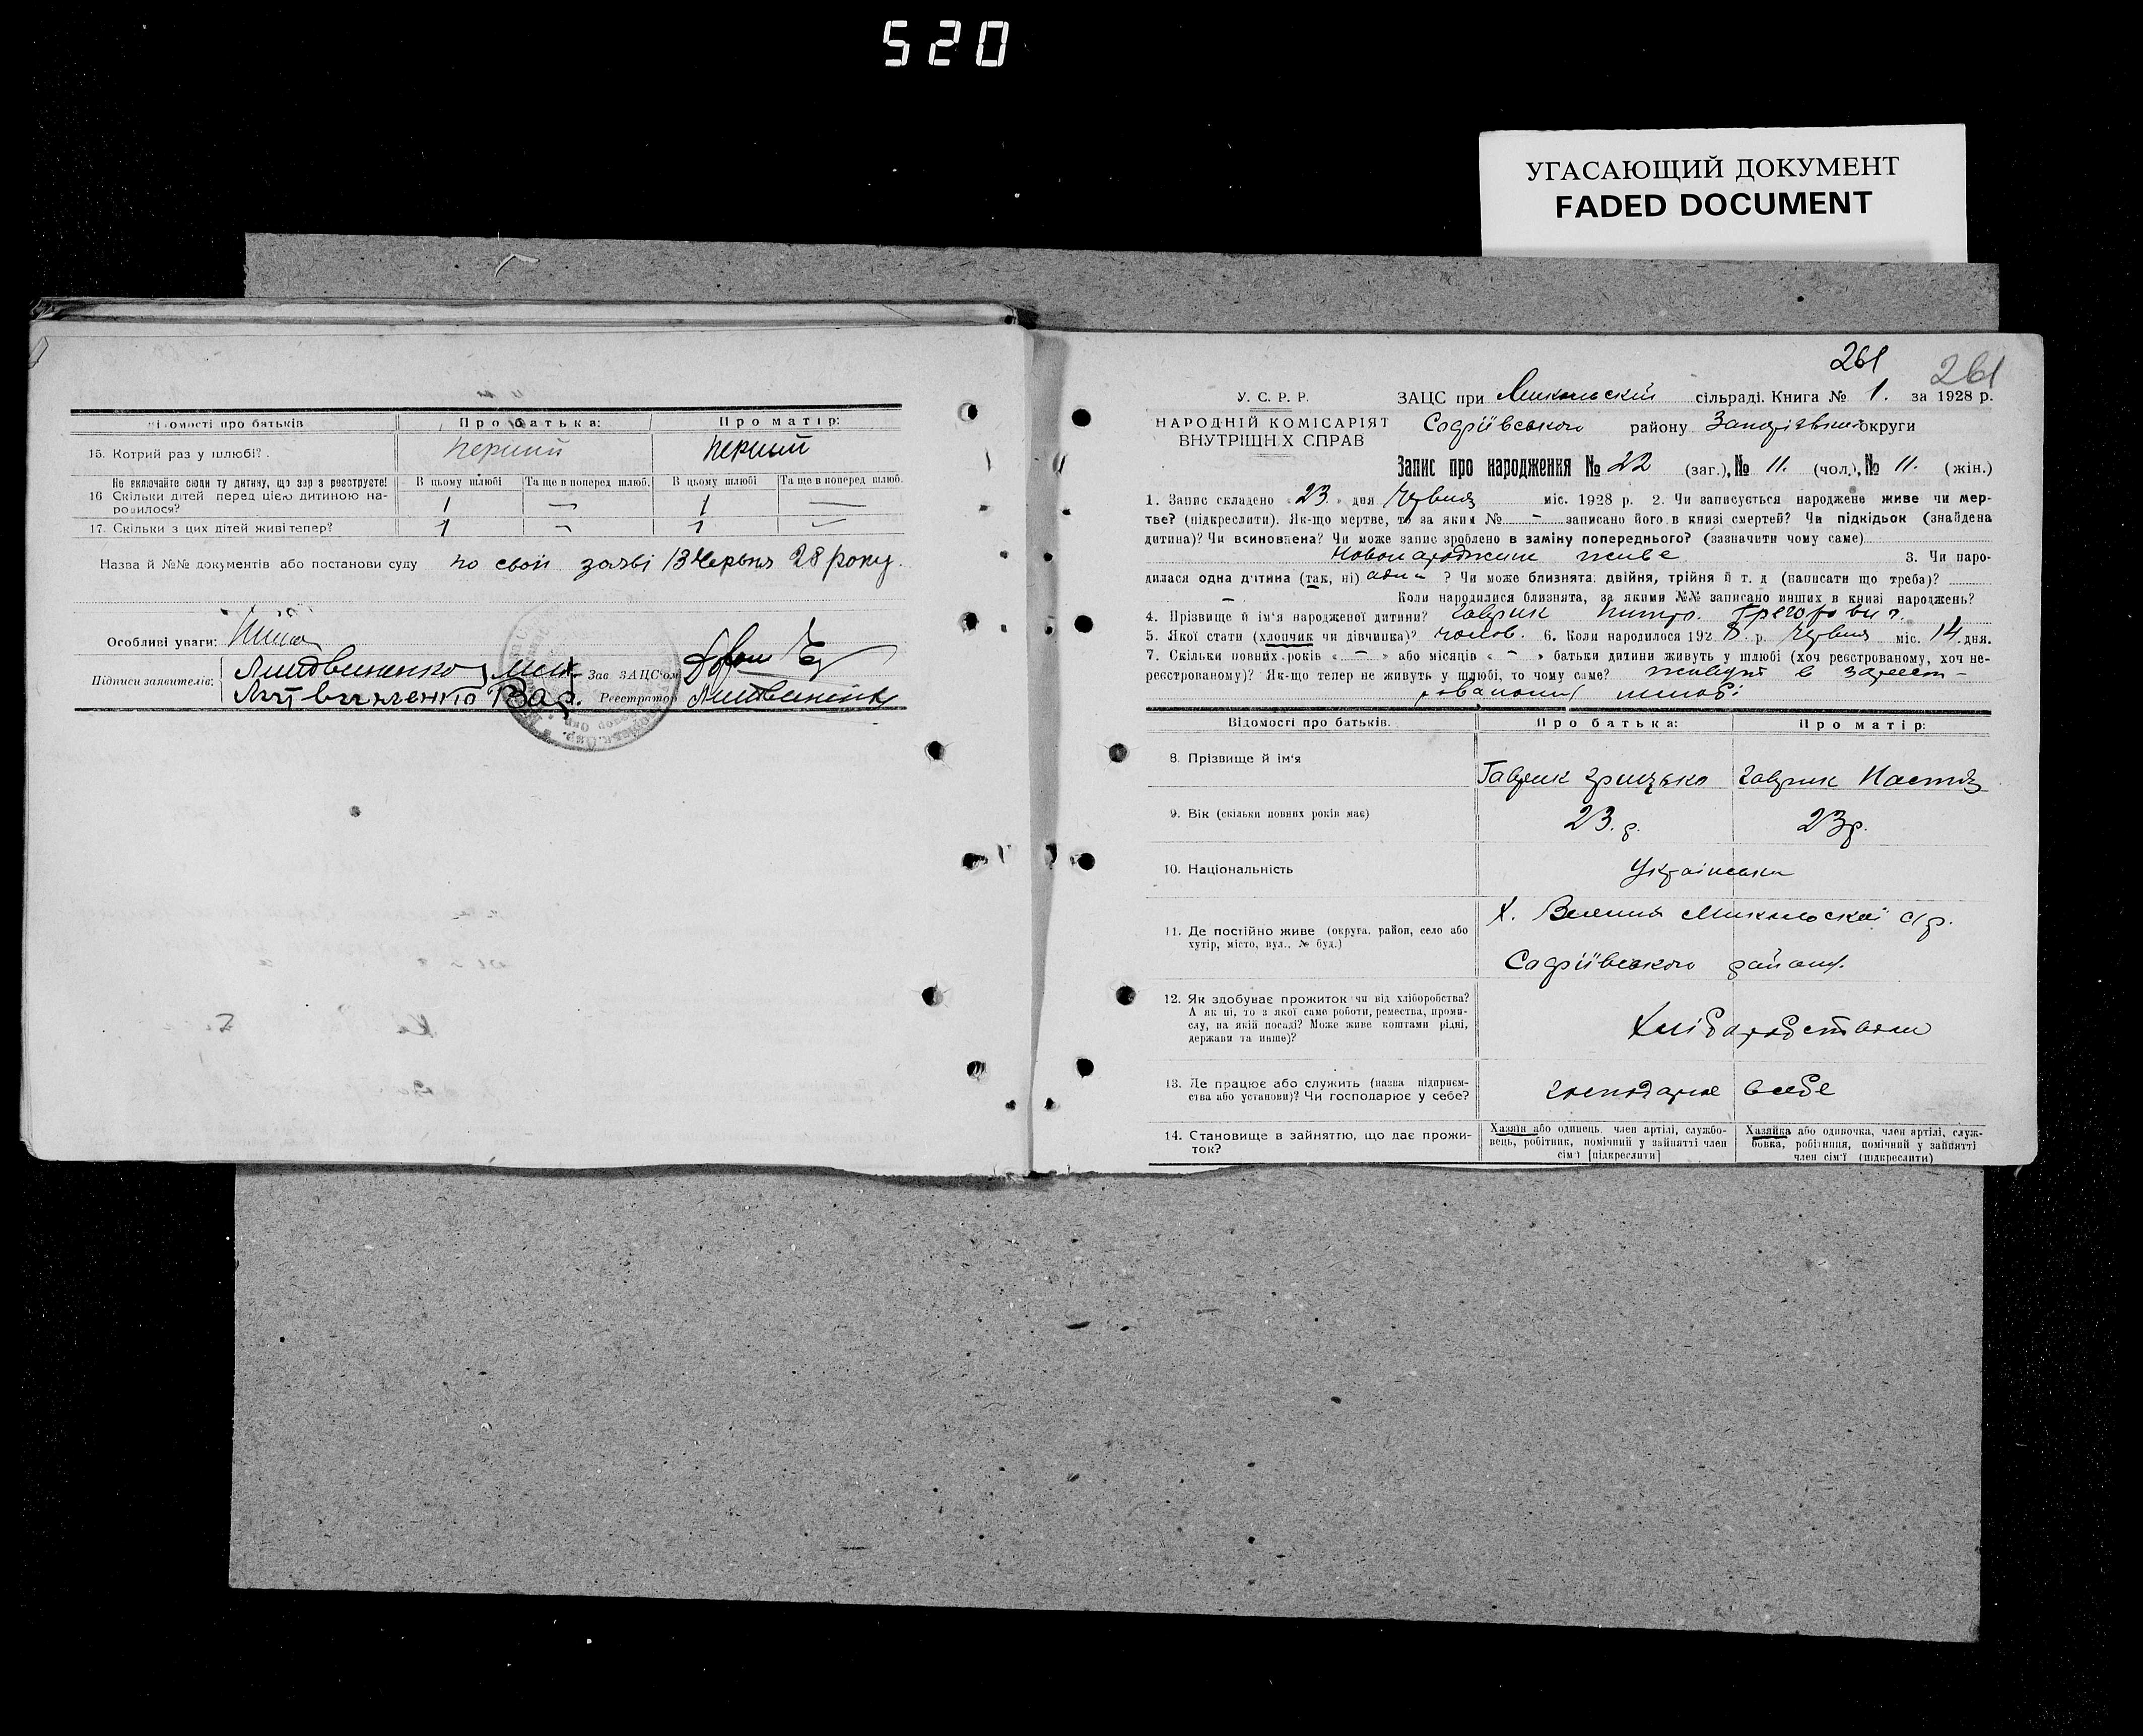 520
УГАСАЮЩИЙ ДОКУМЕНТ
FADED DOCUMENT
Відомості про батьків
Про батька:
Про матір:
15. Котрий раз у шлюбі?
перший
перший
Не включайте сюди ту дитину, що зараз реєструєте!
В цьому шлюбі
Та ще в поперед. шлюб.
В цьому шлюбі
Та ще в поперед. шлюб.
16 Скільки дітей перед цією дитиною народилося?
1 — 1 —
17. Скільки з цих дітей живі тепер?
1 — 1 —
Назва й №№ документів або постанови суду по свой заяві 13 Червня 28 року.
Особливі уваги:
Підписи заявителів:
Литвиненко
Зав ЗАЦС'ом
Литвиненко Вар.
Реєстратор Литвиненко
261 261
У. С. Р. Р.
НАРОДНІЙ КОМІСАРІЯТ
ВНУТРІШНІХ СПРАВ
ЗАЦС при Микольский сільраді. Книга № 1. за 1928 р.
Софіївського району Запорізької округи
Запис про народження № 22 (заг.), № 11. (чол.), № 11. (жін.)
1. Запис складено «23» дня Червня міс. 1928 р. 2. Чи записується народжене живе чи мер-
тве? (підкреслити). Як-що мертве, то за яким № — записано його в книзі смертей? Чи підкідьок (знайдена
дитина)? Чи всиновлена? Чи може запис зроблено в заміну попереднього? (зазначити чому саме)
живе 3. Чи наро-
дилася одна дитина (так, ні) ? Чи може близнята: двійня, трійня й т. д (написати що треба)?
— Коли народилися близнята, за якими №№ записано инших в книзі народжень?
4. Прізвище й ім'я народженої дитини? Гаврик Григорович
5. Якої стати (хлопчик чи дівчинка)? чолов. 6. Коли народилося 1928. р. Червня міс. 14 дня.
7. Скільки повних років « — » або місяців « — » батьки дитини живуть у шлюбі (хоч реєстрованому, хоч не-
реєстрованому)? Як-що тепер не живуть у шлюбі, то чому саме? живуть в зареєст-
рованому шлюбі
Відомості про батьків.
Про батька:
Про матір:
8. Прізвище й ім'я
Гаврик Грицько
Гаврик Настя
9. Вік (скільки повних років має)
23. р.
23 р.
10. Національність
Українська
11. Де постійно живе (округа, район, село або
хутір, місто, вул., № буд.)
Х. Микольской с/р.
Софіївського району.
12. Як здобуває прожиток чи від хліборобства?
А як ні, то з якої саме роботи, ремества, проми-
слу, на якій посаді? Може живе коштами рідні,
держави та инше)?
Хліборобством
13. Де працює або служить (назва підприєм-
ства або установи)? Чи господарює у себе?
господарює в себе
14. Становище в зайняттю, що дає прожи-
ток?
Хазяїн або одинець, член артілі, службо-
вець, робітник, помічний у зайнятті член
сім'ї [підкреслити]
Хазяйка або одиночка, член артілі, служ-
бовка, робітниця, помічний у зайнятті
член сім'ї (підкреслити)